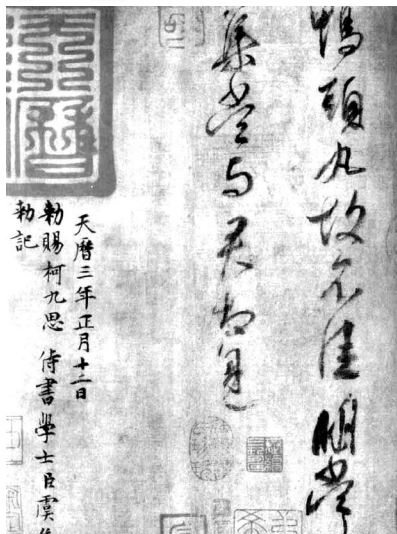 鴨頭丸故不佳明當
集當与君相見
天曆三年正月十二日
勑賜柯九思侍書學士臣虞
勑記